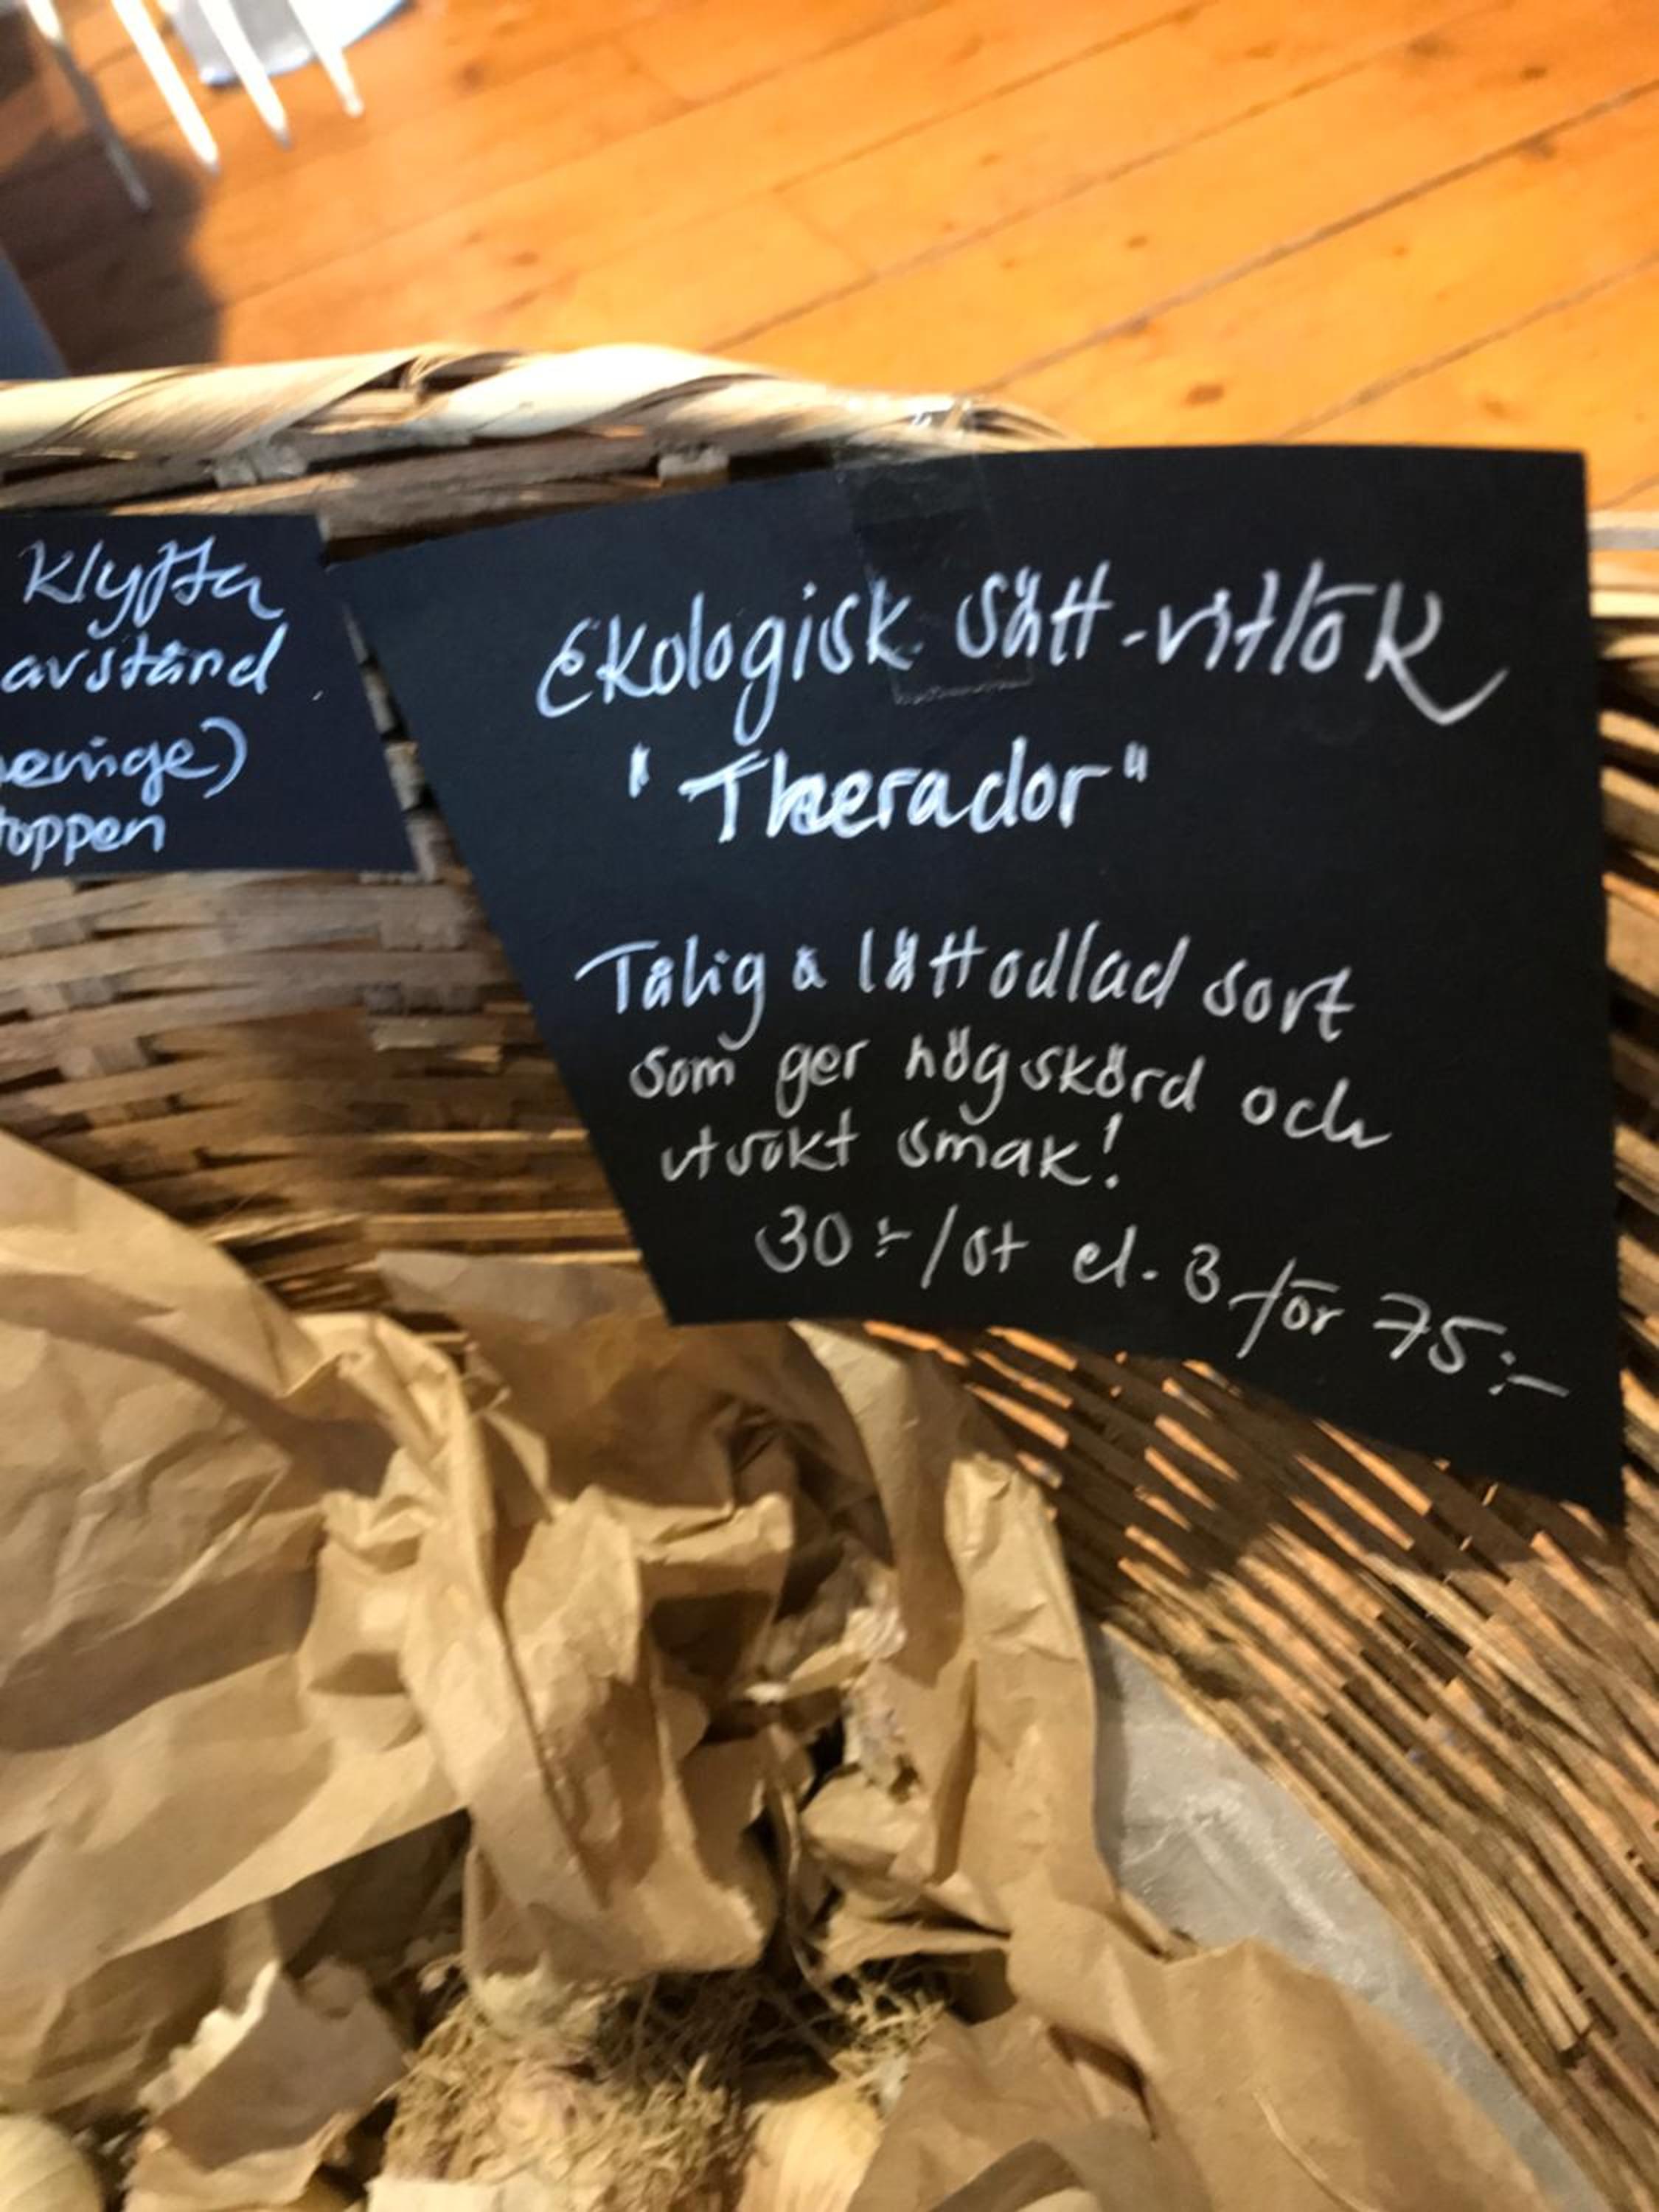 Klyfta
avstånd
toppen
Ekologisk Sätt-vitlök
"Therador"
Tålig & lättodlad sort
som ger hög skörd och
utsökt smak!
30:-/st el. 3 för 75:-